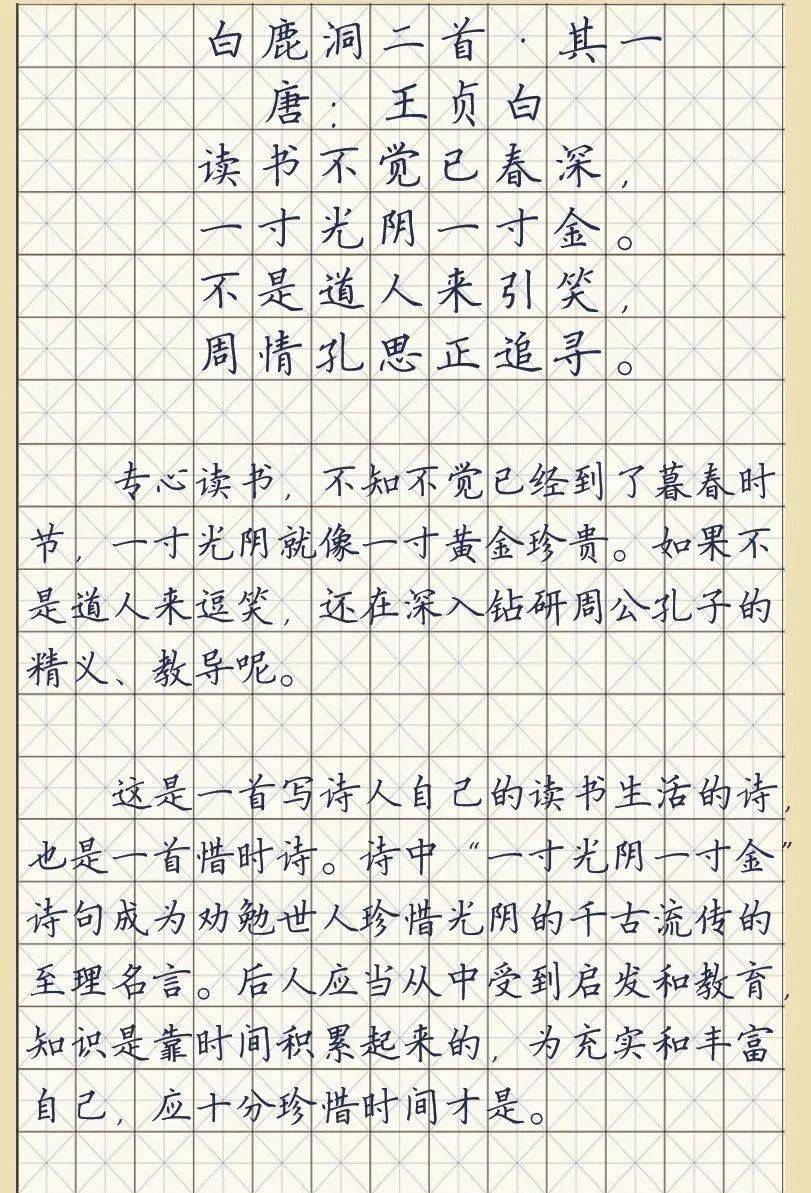 白鹿洞二首·其一
唐：王贞白
读书不觉已春深，
一寸光阴一寸金。
不是道人来引笑，
周情孔思正追寻。
专心读书，不知不觉已经到了暮春时
节，一寸光阴就像一寸黄金珍贵。如果不
是道人来逗笑，还在深入钻研周公孔子的
精义、教导呢。
这是一首写诗人自己的读书生活的诗，
也是一首惜时诗。诗中“一寸光阴一寸金”
诗句成为劝勉世人珍惜光阴的千古流传的
至理名言。后人应当从中受到启发和教育，
知识是靠时间积累起来的，为充实和丰富
自己，应十分珍惜时间才是。